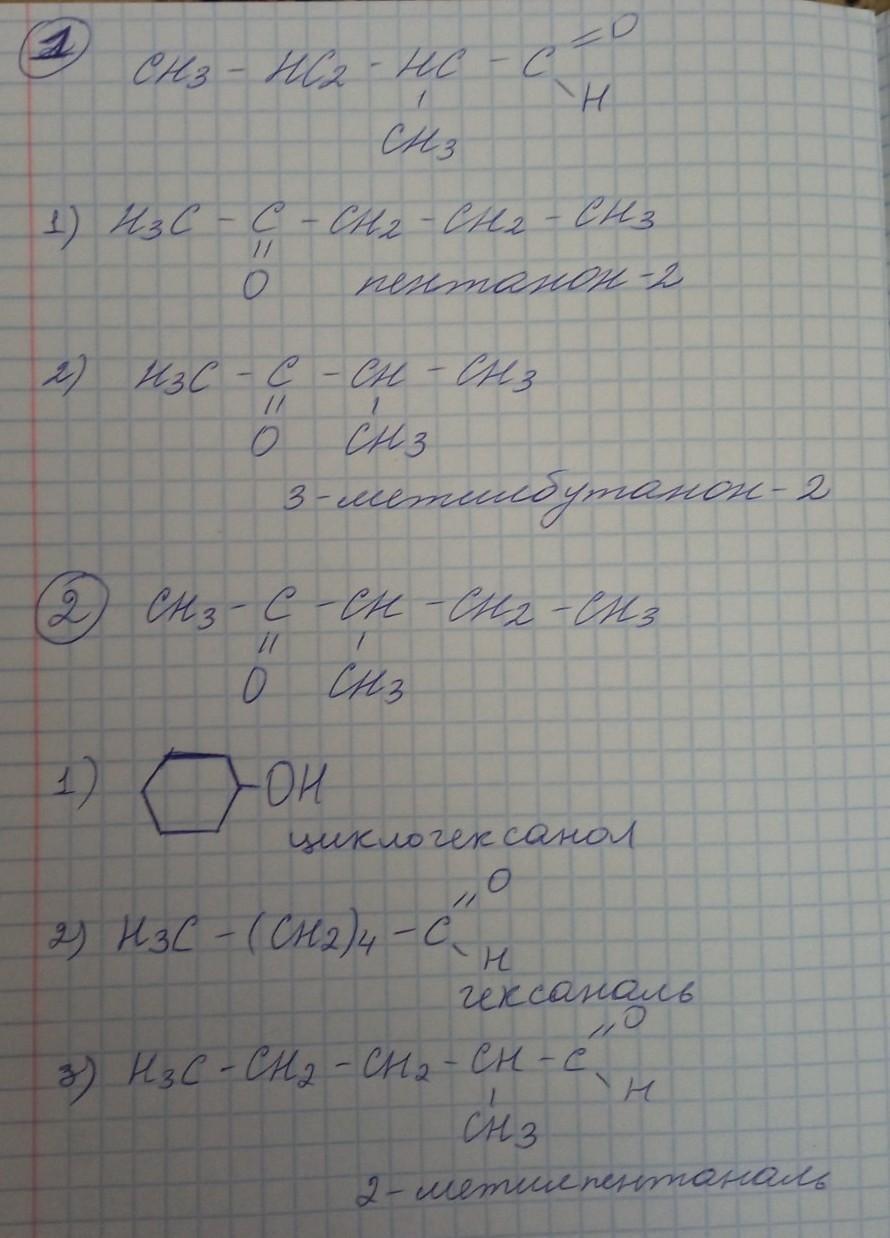 1
O
CH3 - HC2 - HC - C =
H
CH3
1) H3C - C - CH2 - CH2 - CH3
O пентанон-2
2) H3C - C - CH - CH3
O CH3
3-метилбутанон-2
2 CH3 - C - CH - CH2 - CH3
O CH3
1) -OH
циклогексанол
O
2) H3C - (CH2)4 - C
H
гексаналь
O
3) H3C - CH2 - CH2 - CH - C
H
CH3
2-метилпентаналь